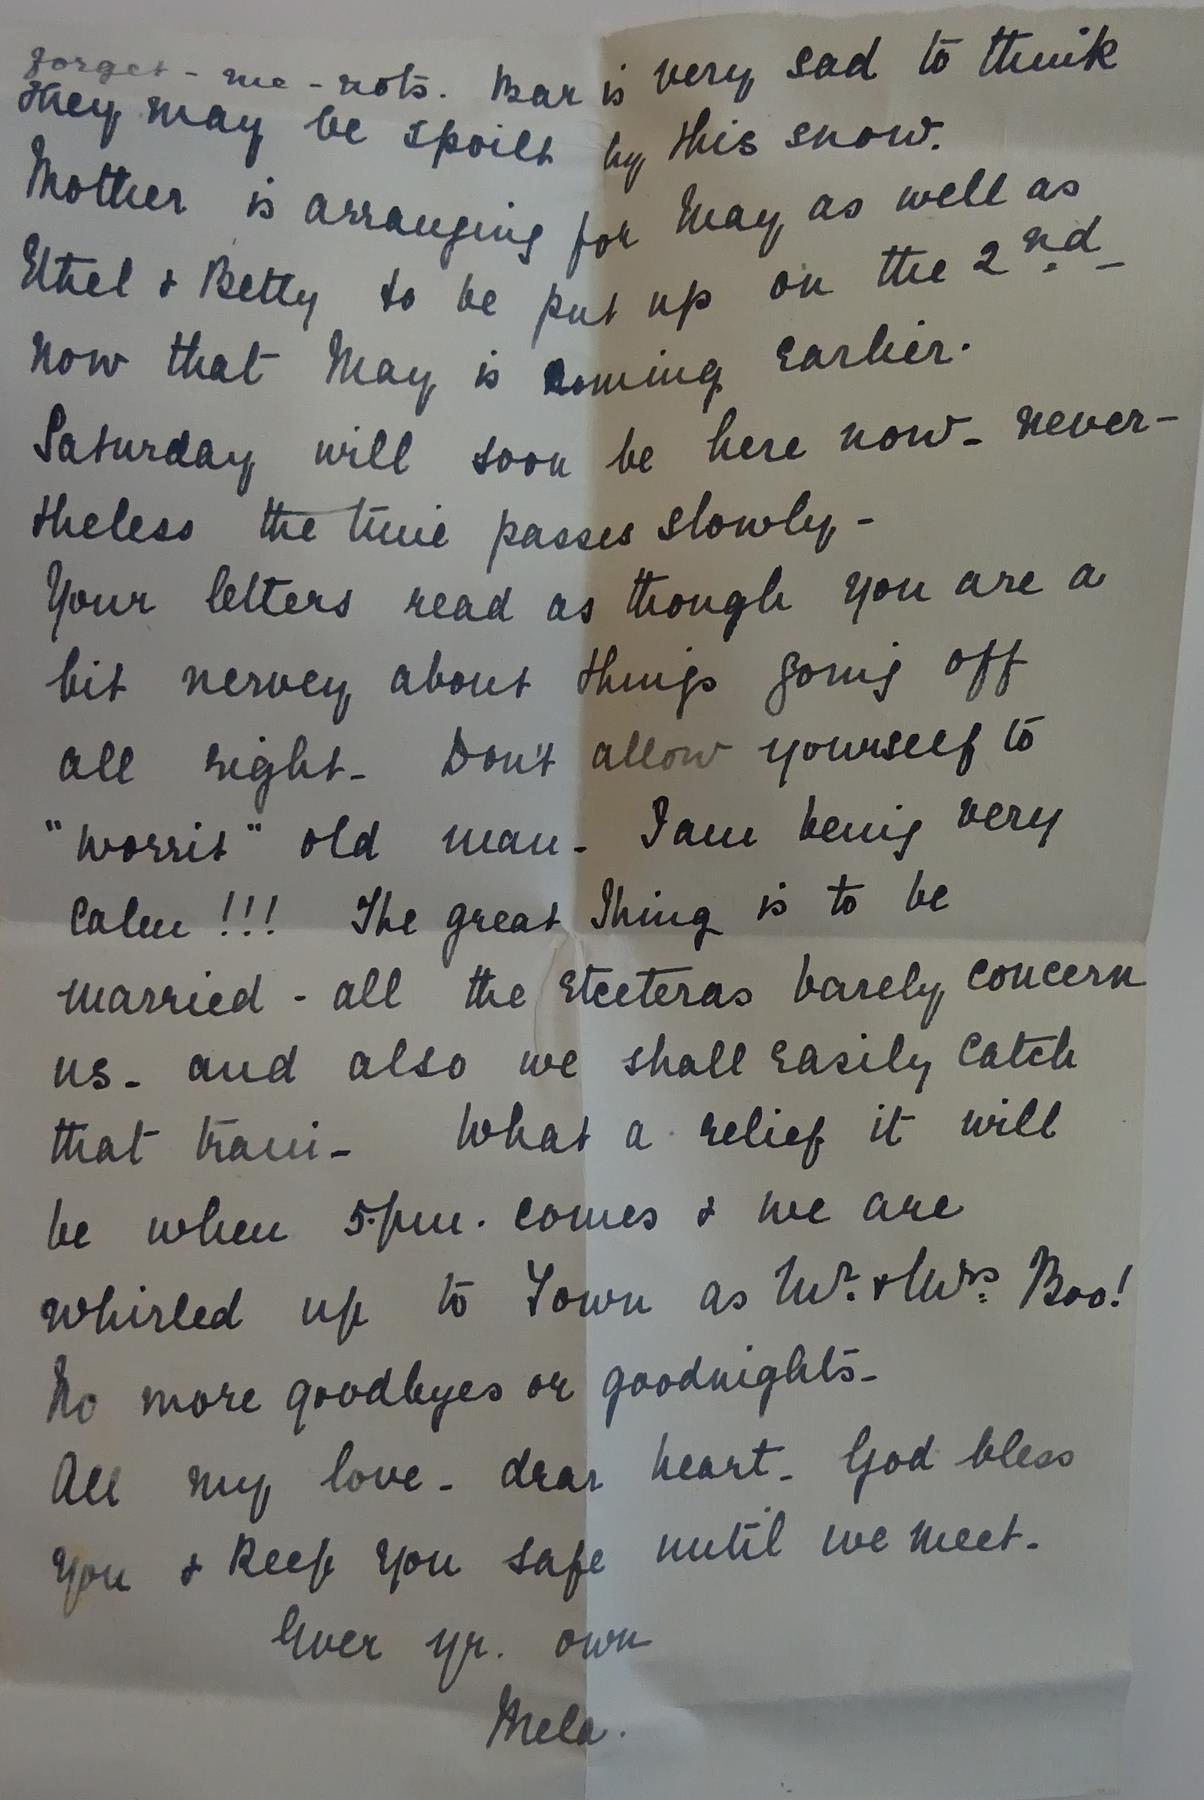 forget-me-nots. Bar is very sad to think
they may be spoilt by this snow.
Mother is arranging for May as well as
Ethel & Betty to be put up on the 2nd
now that May is coming earlier.
Saturday will soon be here now - never-
theless the time passes slowly -
Your letters read as though you are a
bit nervey about things going off
all right - Don't allow yourself to
"worrit" old man - I am being very
calm!!! The great Thing is to be
married - all the etceteras barely concern
us - and also we shall easily catch
that train - What a relief it will
be when 5.pm. comes & we are
whirled up to Town as Mr. & Mrs. Boo!
No more goodbyes or goodnights -
All my love - dear heart - God bless
you & keep you safe until we meet -
Ever yr. own
Mela.